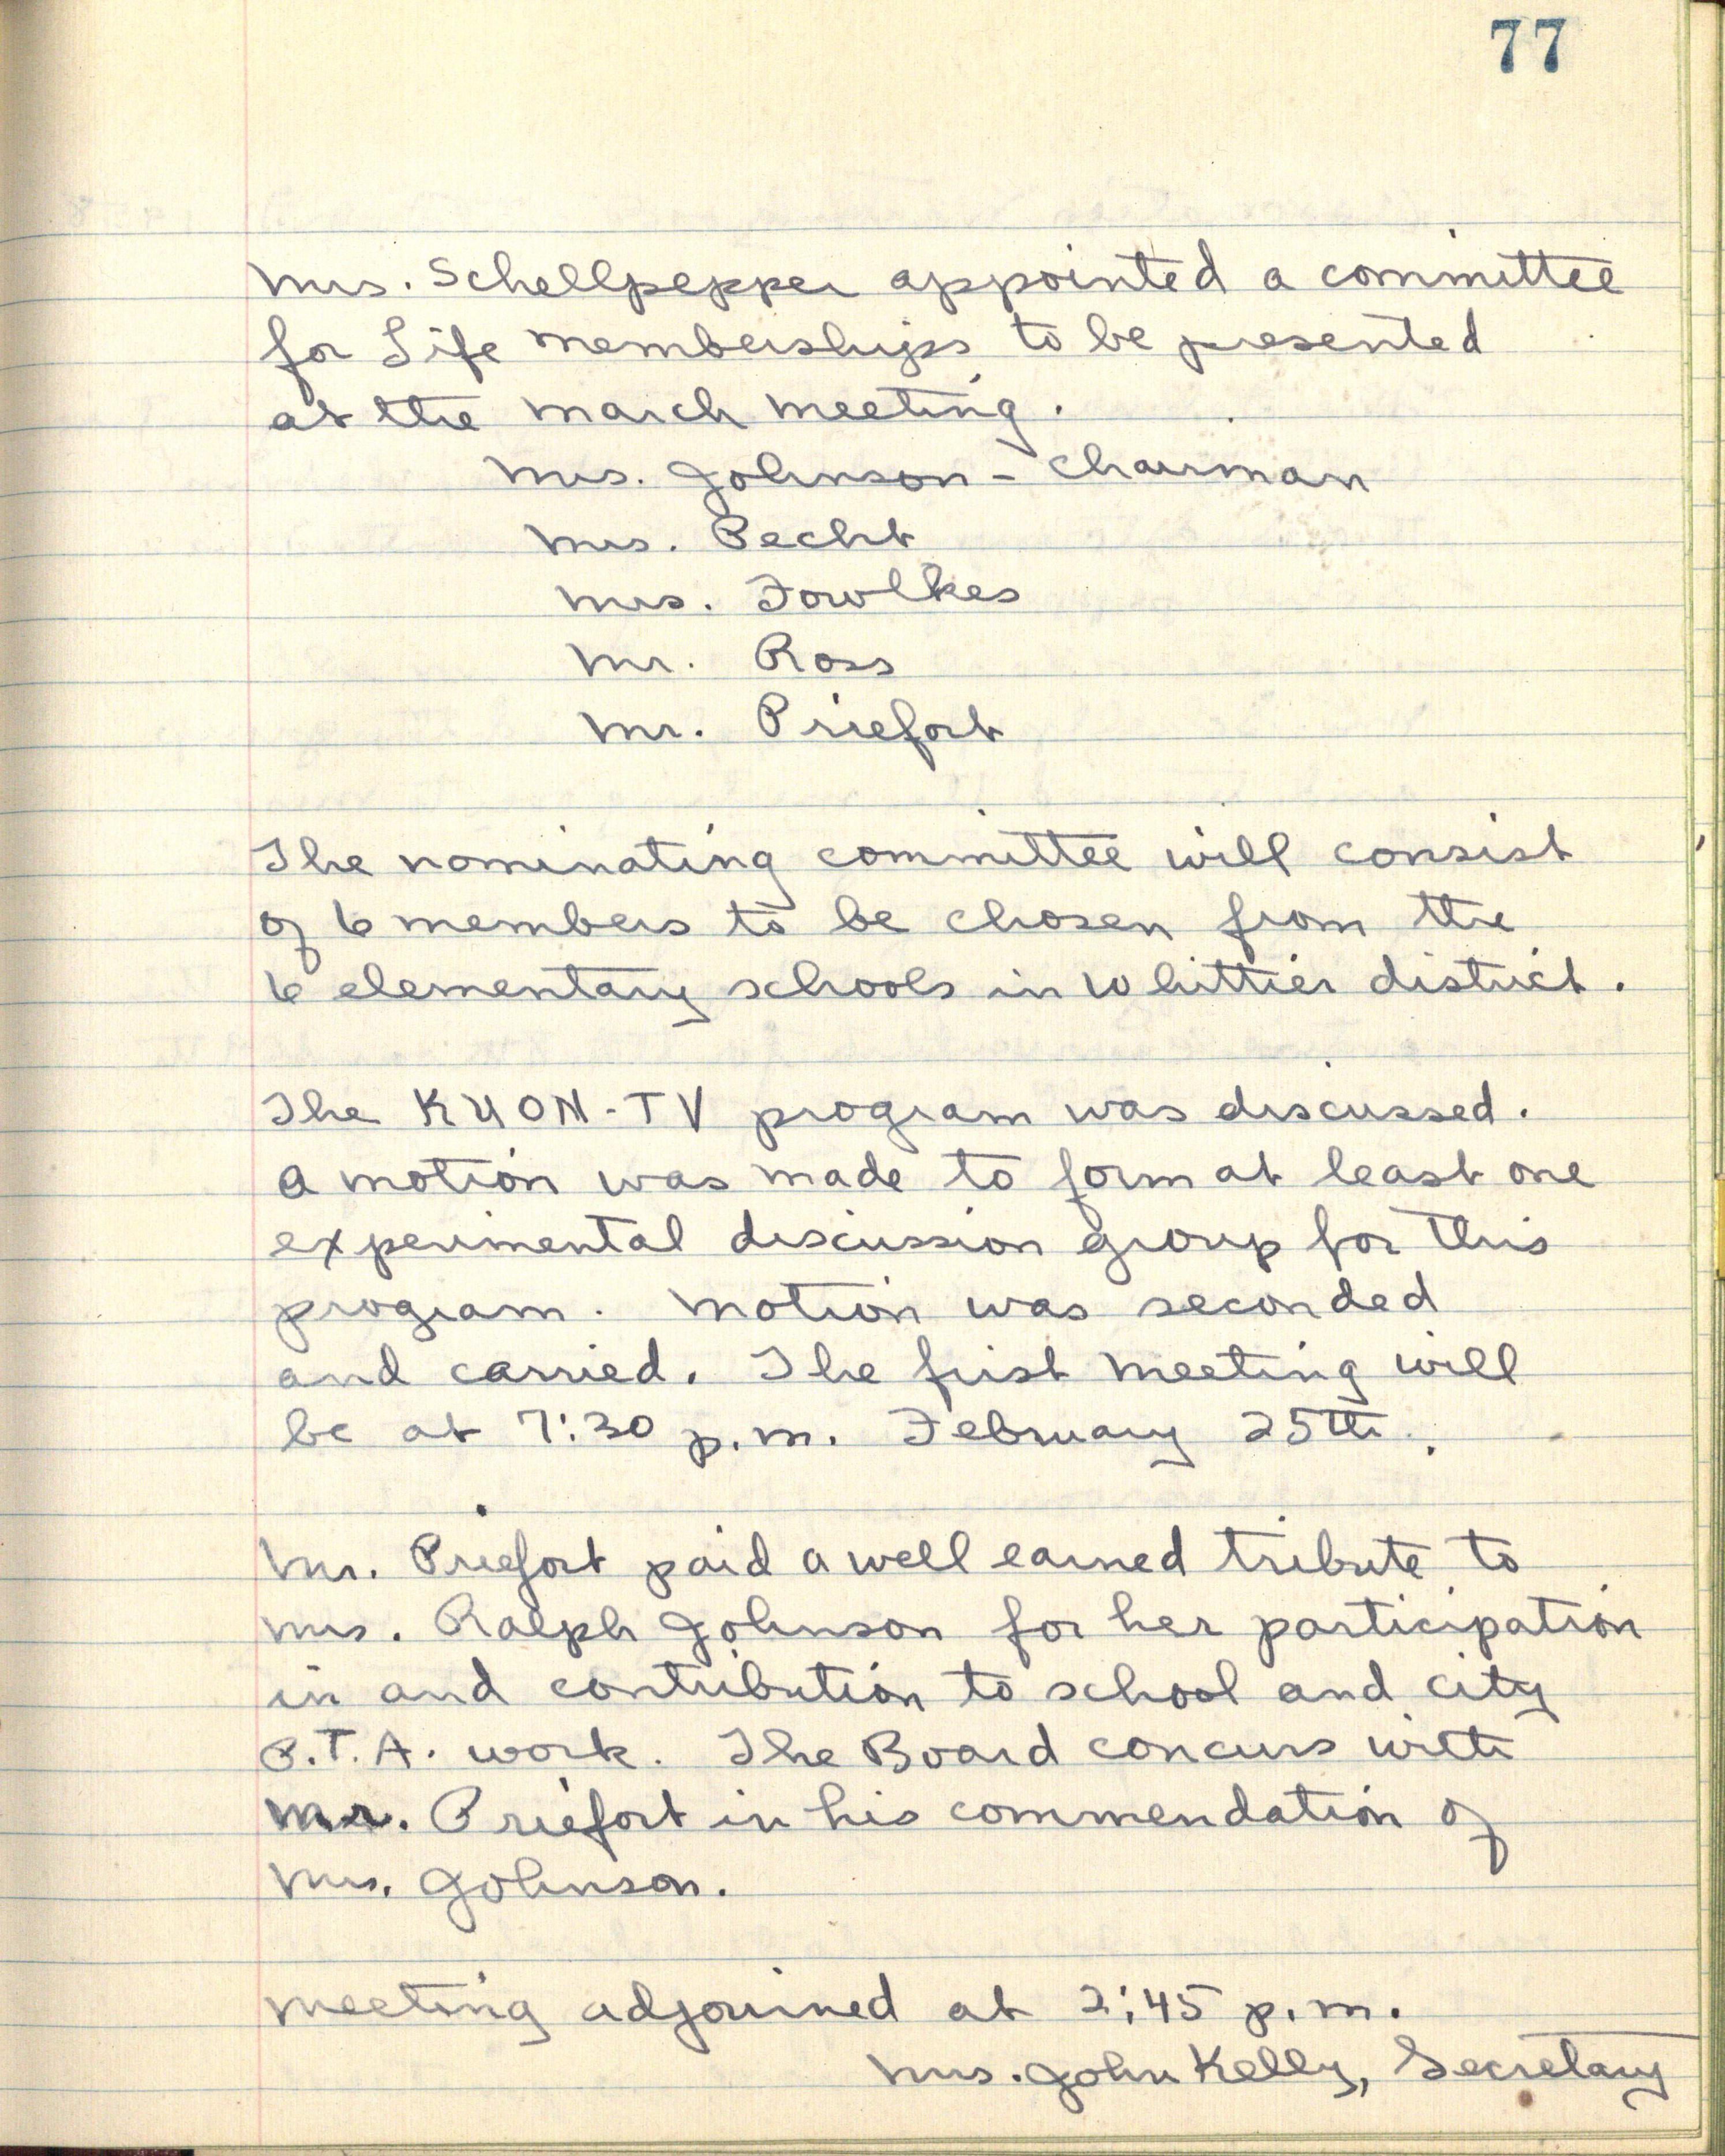 77
Mrs. Schellpepper appointed a committee
for Life memberships to be presented
at the March meeting.
Mrs. Johnson - Chairman
Mrs. Pecht
Mrs. Fowlkes
Mr. Ross
Mr. Priefort
The nominating committee will consist
of 6 members to be chosen from the
6 elementary schools in Whittier district.
The KUON-TV program was discussed.
A motion was made to form at least one
experimental discussion group for this
program. Motion was seconded
and carried. The first meeting will
be at 7:30 p.m. February 25th.
Mr. Priefort paid a well earned tribute to
Mrs. Ralph Johnson for her participation
in and contribution to school and city
P.T.A. work. The Board concurs with
Mr. Priefort in his commendation of
Mrs. Johnson.
Meeting adjourned at 2:45 p.m.
Mrs. John Kelly, Secretary